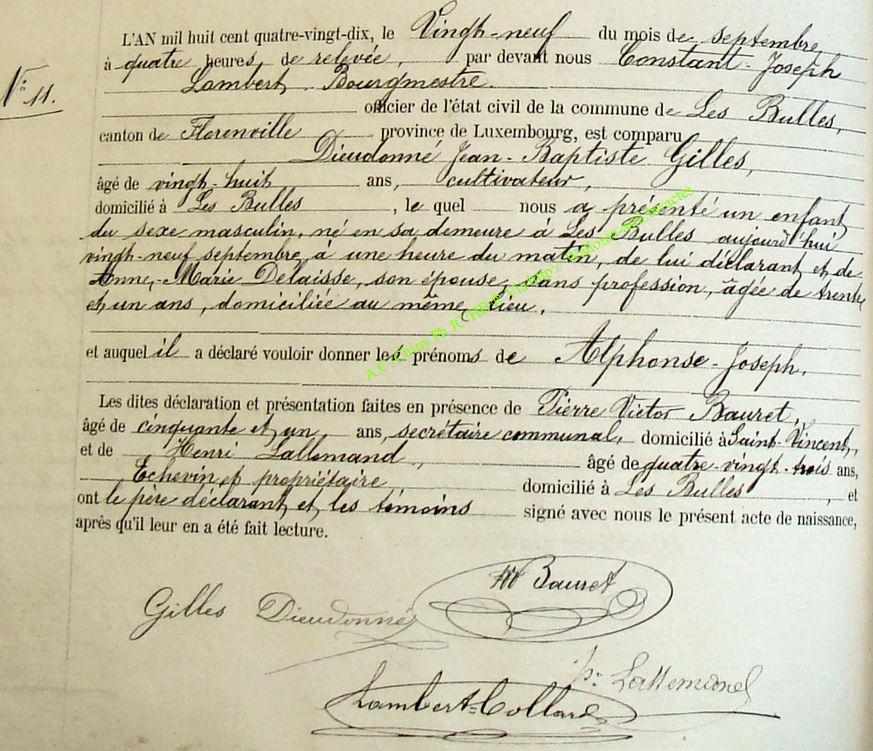 L'AN mil huit cent quatre-vingt-dix, le Vingt-neuf du mois de septembre
à quatre heures, de relevée, par devant nous Constant-Joseph
N° 11.
Lambert, Bourgmestre.
officier de l'état civil de la commune de Les Bulles,
canton de Florenville province de Luxembourg, est comparu
Dieudonné Jean-Baptiste Gilles,
âgé de vingt-huit ans, cultivateur,
domicilié à Les Bulles, le quel nous a présenté un enfant
du sexe masculin, né en sa demeure à Les Bulles aujourd'hui
vingt-neuf septembre, à une heure du matin, de lui déclarant et de
Anne-Marie Delaisse, son épouse, sans profession, âgée de trente
et un ans, domiciliée au même lieu.
et auquel il a déclaré vouloir donner les prénoms de Alphonse-Joseph.
Les dites déclaration et présentation faites en présence de Pierre Victor Bauret,
âgé de cinquante et un ans, secrétaire communal, domicilié à Saint-Vincent,
et de Henri Lallemand, âgé de quatre-vingt-trois ans,
Echevin et propriétaire domicilié à Les Bulles, et
ont le père déclarant et les témoins signé avec nous le présent acte de naissance,
après qu'il leur en a été fait lecture.
Bauret
Gilles Dieudonné
Lallemand
Lambert-Collard